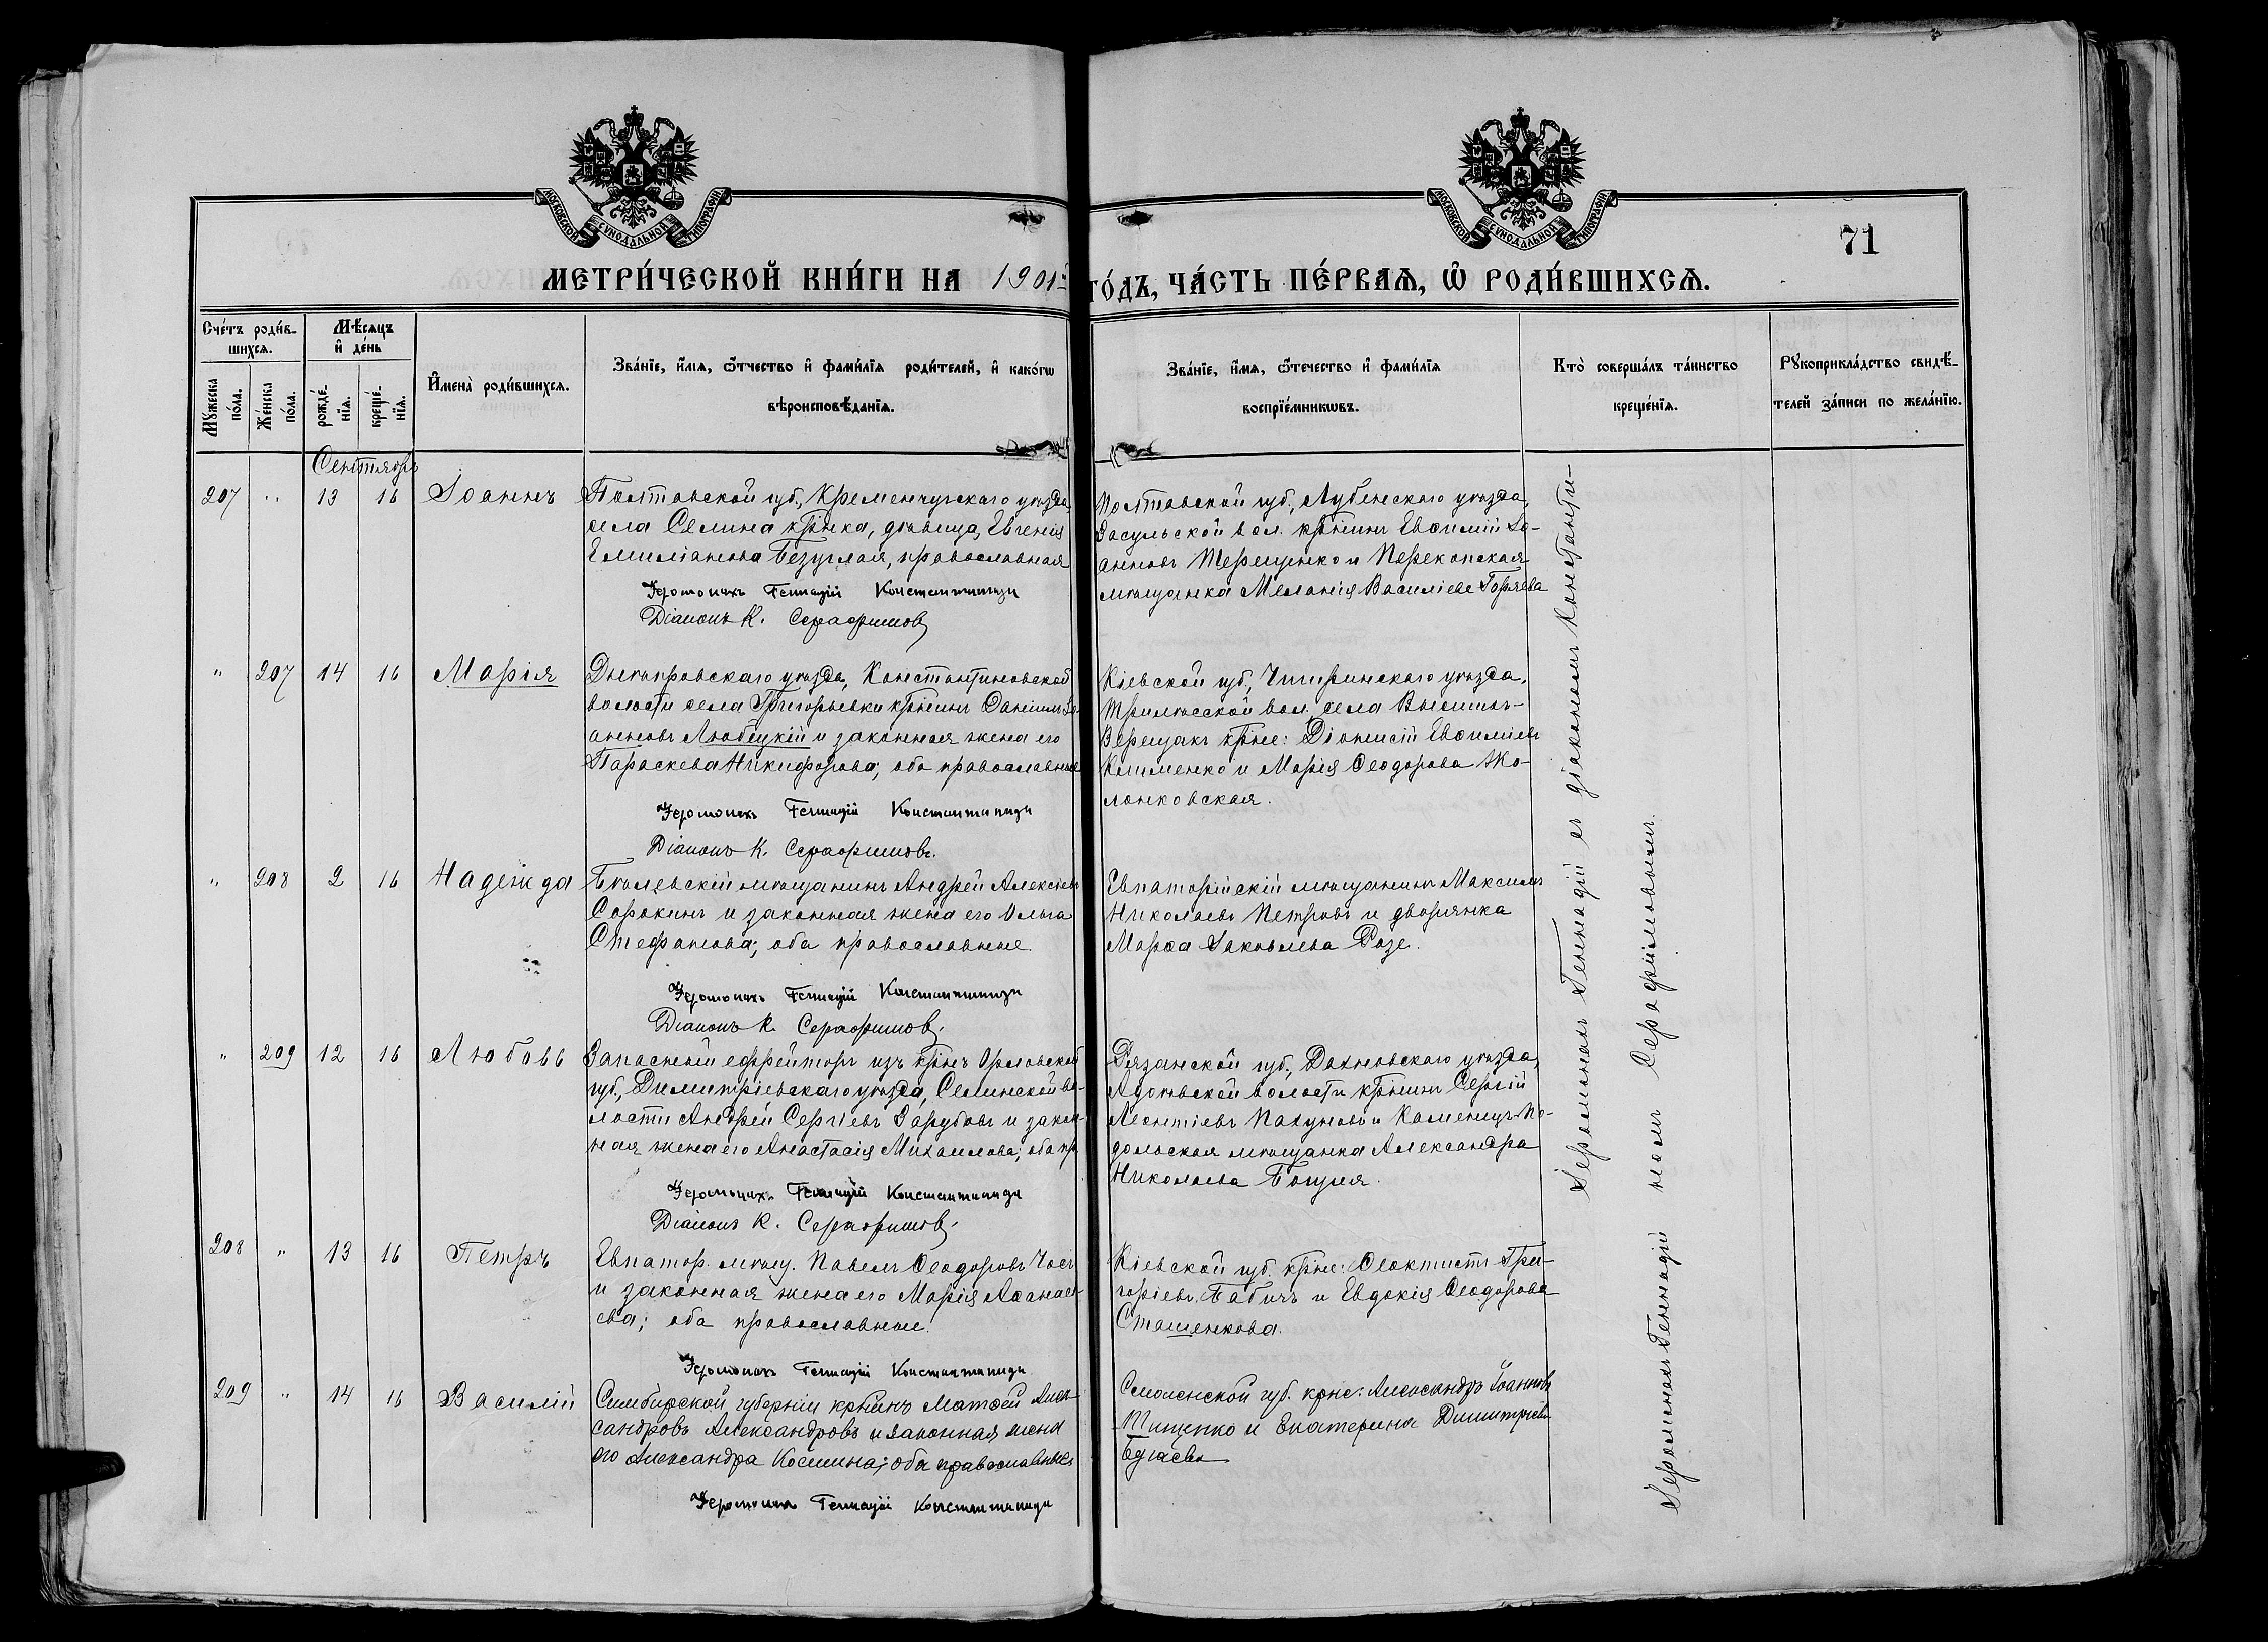 МОСКОВСКОЙ СѴНОДАЛЬНОЙ ТИПОГРАФІИ
МОСКОВСКОЙ СѴНОДАЛЬНОЙ ТИПОГРАФІИ
71
МЕТРИ́ЧЕСКОЙ КНИ́ГИ НА 1901й ГО́ДЪ, ЧА́СТЬ ПЕ́РВАѦ, Ѡ РОДИ́ВШИХСѦ.
Сче́тъ роди́в-
шихсѧ.
Мѣ́сѧцъ
и҆ де́нь
Мꙋ́жеска по́ла.
Же́нска по́ла.
рожде́-
нїѧ.
креще́-
нїѧ.
И҆мена̀ роди́вшихсѧ.
Зва́нїе, и҆́мѧ, ѻ҆́тчество и҆ фами́лїѧ роди́телей, и҆ како́гѡ
вѣроисповѣ́данїѧ.
Зва́нїе, и҆́мѧ, ѻ҆те́чество и҆ фами́лїѧ
воспрїе́мникѡвъ.
Кто̀ соверша́лъ та́инство
креще́нїѧ.
Рꙋкоприкла́дство свидѣ́-
телей за́писи по жела́нїю.
Сентябрь
207 " 13 16 Іоаннъ
Полтавской губ., Кременчугскаго уѣзда,
села Селина крѣнка, дѣвица, Евгенія
Емиліанова Безуглая, православная
Іеромонахъ Геннадій Константиниди
Діаконъ К. Серафимовъ
Полтавской губ., Лубенскаго уѣзда,
Засульской вол. крѣнинъ Евѳимій Іо-
анновъ Терещенко и Перекопская
мѣщанка Меланія Василіева Горяева
" 207 14 16 Марія
Днѣпровскаго уѣзда, Константиновской
волости села Григорьевки крѣнинъ Даніилъ Іо-
анновъ Любецкій и законная жена его
Параскева Никифорова; оба православные
Іеромонахъ Геннадій Константиниди
Діаконъ К. Серафимовъ.
Кіевской губ., Чигиринскаго уѣзда,
Трилѣсской вол., села
Верещакъ крѣне: Діонисій Евѳиміевъ
Клименко и Марія Ѳеодорова Жо-
лонковская.
" 208 2 16 Надежда
Бѣлевскій мѣщанинъ Андрей Алексіевъ
Сорокинъ и законная жена его Ольга
Стефанова; оба православные.
Іеромонахъ Геннадій Константиниди
Діаконъ К. Серафимовъ.
Евпаторійскій мѣщанинъ Максимъ
Николаевъ Петровъ и дворянка
Марѳа Іаковлева Розе.
" 209 12 16 Любовь
Запасной ефрейторъ изъ крѣнъ Орловской
губ., Димитріевскаго уѣзда, Селинской во-
лости Андрей Сергіевъ Зарубовъ и закон-
ная жена его Анастасія Михаилова; оба пр
Іеромонахъ Геннадій Константиниди
Діаконъ К. Серафимовъ.
Рязанской губ., Данковскаго уѣзда,
волости крѣнинъ Сергій
Леонтіевъ Пахуновъ и Каменецъ-По-
дольская мѣщанка Александра
Николаева
208 " 13 16 Петръ
Евпатор. мѣщ. Павелъ Ѳеодоровъ
и законная жена его Марія Аѳанась-
ева; оба православные.
Іеромонахъ Геннадій Константиниди
Кіевской губ. крѣне: Ѳеоктистъ Гри-
горіевъ Бабичъ и Евдокія Ѳеодорова
Сташенкова.
209 " 14 16 Василій
Симбирской губерніи крѣнинъ Матѳей Алек-
сандровъ Александровъ и законная жена
его Александра Космина; оба православные
Іеромонахъ Геннадій Константиниди
Смоленской губ. крѣне: Александръ Іоанновъ
Тищенко и Екатерина Димитріева
Іеромонахъ Геннадій съ діакономъ Константи-
номъ Серафимовымъ.
Іеромонахъ Геннадій